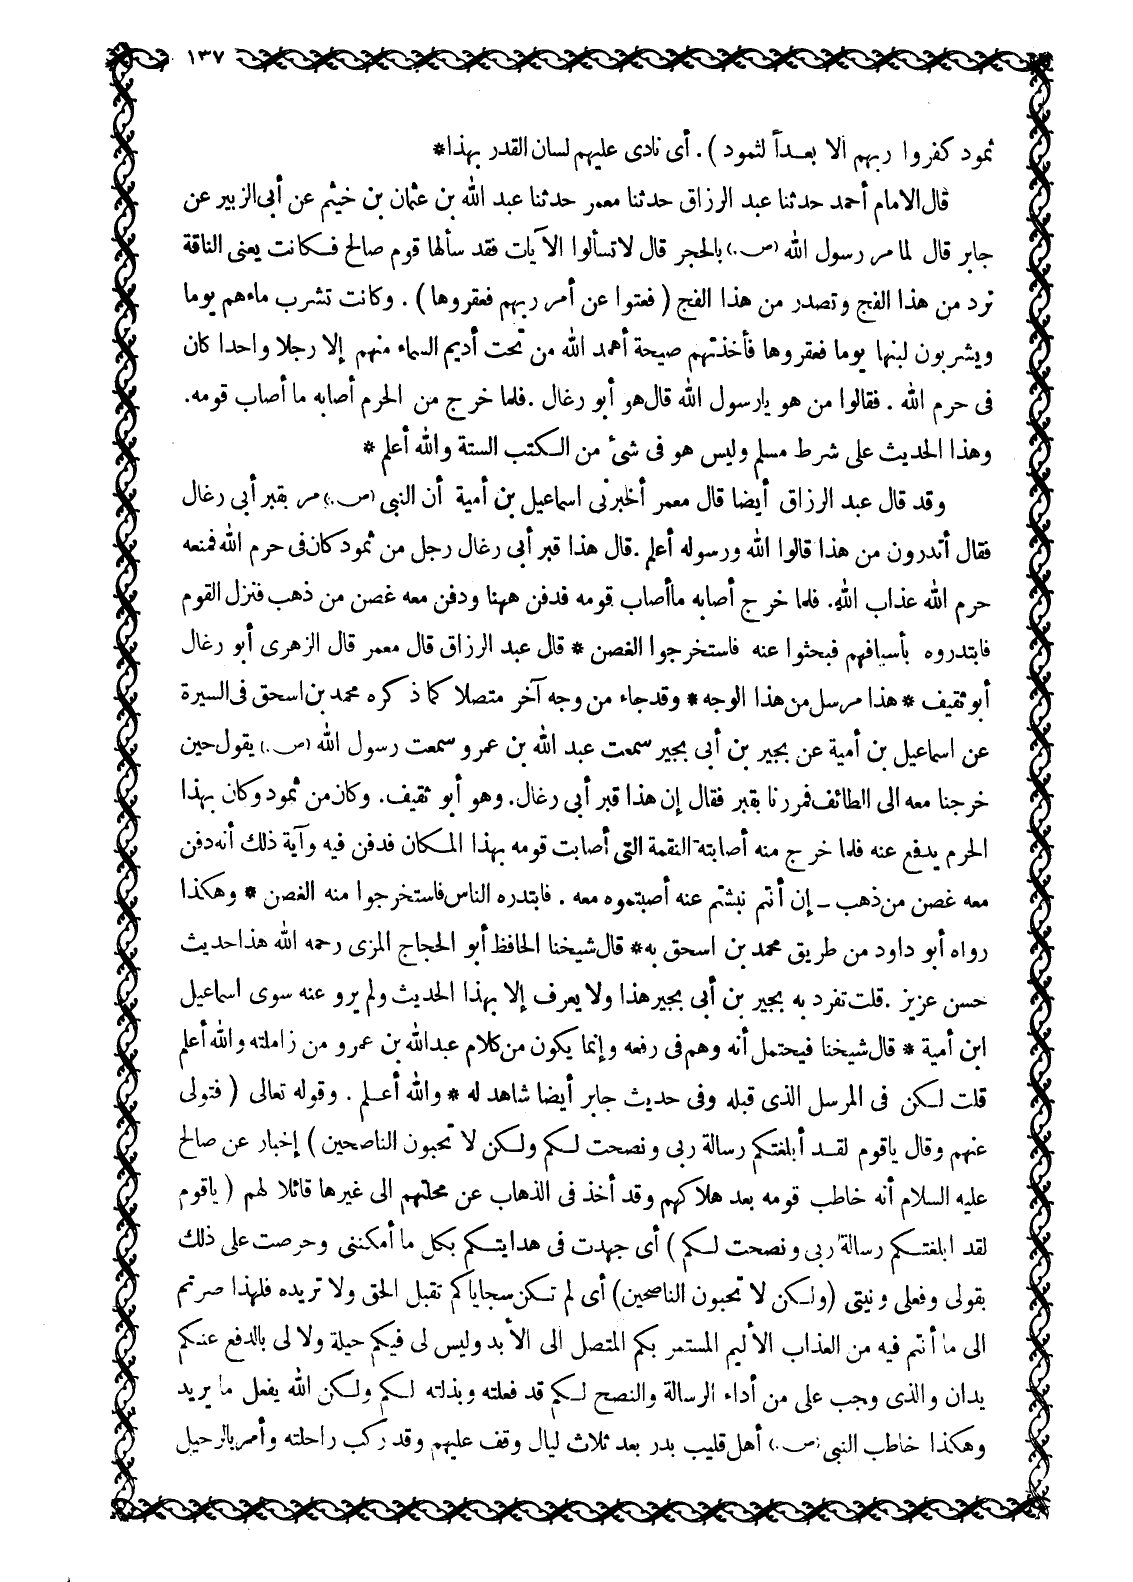 ١٣٧
ثمود كفروا ربهم ألا بعداً لثمود ) . أى نادى عليهم لسان القدر بهذا*
قال الامام أحمد حدثنا عبد الرزاق حدثنا معمر حدثنا عبد الله بن عثمان بن خيثم عن أبى الزبير عن
جابر قال لما مر رسول الله (ص.) بالحجر قال لا تسألوا الآيات فقد سألها قوم صالح فكانت يعنى الناقة
ترد من هذا الفج وتصدر من هذا الفج ( فعتوا عن أمر ربهم فعقروها ) . وكانت تشرب ماءهم يوما
ويشربون لبنها يوما فعقروها فأخذتهم صيحة أهمد الله من تحت أديم السماء منهم إلا رجلا واحدا كان
فى حرم الله . فقالوا من هو يارسول الله قال هو أبو رغال . فلما خرج من الحرم أصابه ما أصاب قومه.
وهذا الحديث على شرط مسلم وليس هو فى شئ من الكتب الستة والله أعلم *
وقد قال عبد الرزاق أيضا قال معمر أخبرنى اسماعيل بن أمية أن النبى (ص.) مر بقبر أبى رغال
فقال أتدرون من هذا قالوا الله ورسوله أعلم . قال هذا قبر أبى رغال رجل من ثمود كان فى حرم الله فمنعه
حرم الله عذاب الله. فلما خرج أصابه ما أصاب قومه فدفن ههنا ودفن معه غصن من ذهب فنزل القوم
فابتدروه بأسيافهم فبحثوا عنه فاستخرجوا الغصن * قال عبد الرزاق قال معمر قال الزهرى أبو رغال
أبو ثقيف * هذا مرسل من هذا الوجه * وقد جاء من وجه آخر متصلا كما ذكره محمد بن اسحق فى السيرة
عن اسماعيل بن أمية عن بجير بن أبى بجير سمعت عبد الله بن عمرو سمعت رسول الله (ص.) يقول حين
خرجنا معه الى الطائف فمررنا بقبر فقال إن هذا قبر أبى رغال. وهو أبو ثقيف. وكان من ثمود وكان بهذا
الحرم يدفع عنه فلما خرج منه أصابته النقمة التى أصابت قومه بهذا المكان فدفن فيه وآية ذلك أنه دفن
معه غصن من ذهب – إن أنتم نبشتم عنه أصبتموه معه . فابتدره الناس فاستخرجوا منه الغصن * وهكذا
رواه أبو داود من طريق محمد بن اسحق به* قال شيخنا الحافظ أبو الحجاج المزى رحمه الله هذا حديث
حسن عزيز . قلت تفرد به بجير بن أبى بجير هذا ولا يعرف إلا بهذا الحديث ولم يرو عنه سوى اسماعيل
ابن أمية * قال شيخنا فيحتمل أنه وهم فى رفعه وإنما يكون من كلام عبدالله بن عمرو من زاملته والله أعلم
قلت لكن فى المرسل الذى قبله وفى حديث جابر أيضا شاهد له * والله أعلم . وقوله تعالى ( فتولى
عنهم وقال ياقوم لقد أبلغتكم رسالة ربى ونصحت لكم ولكن لا تحبون الناصحين ) إخبار عن صالح
عليه السلام أنه خاطب قومه بعد هلاكهم وقد أخذ فى الذهاب عن محلتهم الى غيرها قائلا لهم ( ياقوم
لقد ابلغتكم رسالة ربى ونصحت لكم ) أى جهدت فى هدايتكم بكل ما أمكننى وحرصت على ذلك
بقولى وفعلى ونيتى (ولكن لا تحبون الناصحين) أى لم تكن سجاياكم تقبل الحق ولا تريده فلهذا صرتم
الى ما أنتم فيه من العذاب الأليم المستمر بكم المتصل الى الأبد وليس لى فيكم حيلة ولا لى بالدفع عنكم
يدان والذى وجب على من أداء الرسالة والنصح لكم قد فعلته وبذلته لكم ولكن الله يفعل ما يريد
وهكذا خاطب النبى (ص.) أهل قليب بدر بعد ثلاث ليال وقف عليهم وقد ركب راحلته وأمر بالرحيل